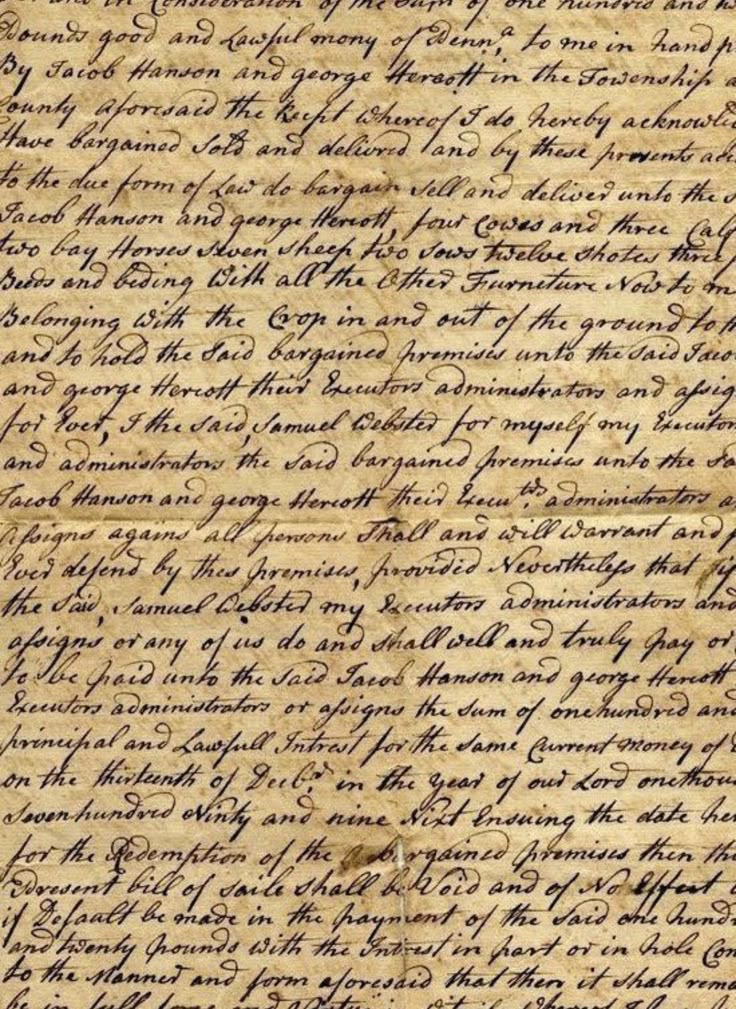 and in Consideration of the Sum of one hundred and
Pounds good and Lawful mony of Penn,a to me in hand
By Jacob Hanson and george Hercott in the Township
County aforesaid the Rcept whereof I do hereby acknowled
Have bargained Sold and delivred and by these presents
to the due form of Law do bargain Sell and deliver unto the
Jacob Hanson and george Hercott, four Cowes and three Calf
two bay Horses Seven Sheep two Sows twelve Shotes three
Beeds and beding With all the Other Furneture Now to
Belonging With the Crop in and out of the ground to
and to hold the Said bargained premises unto the Said Jacob
and george Hercott their Executors administrators and assig
for Ever, I the Said, Samuel Webster for myself my Executors
and administrators the Said bargained premises unto the
Jacob Hanson and george Hercott their Execu,trs administrators
Assigns agains all persons Shall and will Warrant and
Ever defend by thes premises, provided Nevertheless that if
the Said, Samuel Webster my Executors administrators and
assigns or any of us do and Shall well and truly pay or
to be paid unto the Said Jacob Hanson and george Hercott
Executors administrators or assigns the Sum of onehundred and
principal and Lawfull Intrest for the Same Current money of
on the thirteenth of Decb,r in the year of our Lord onethou
Sevenhundred Ninty and nine Next Ensuing the date
for the Redemption of the bargained premises then
Present bill of Saile Shall be Void and of No Effect
if Defaalt be made in the payment of the Said one hund
and twenty pounds with the Intrest in part or in hole Con
to the Manner and form aforesaid that then it Shall rema
be in full and